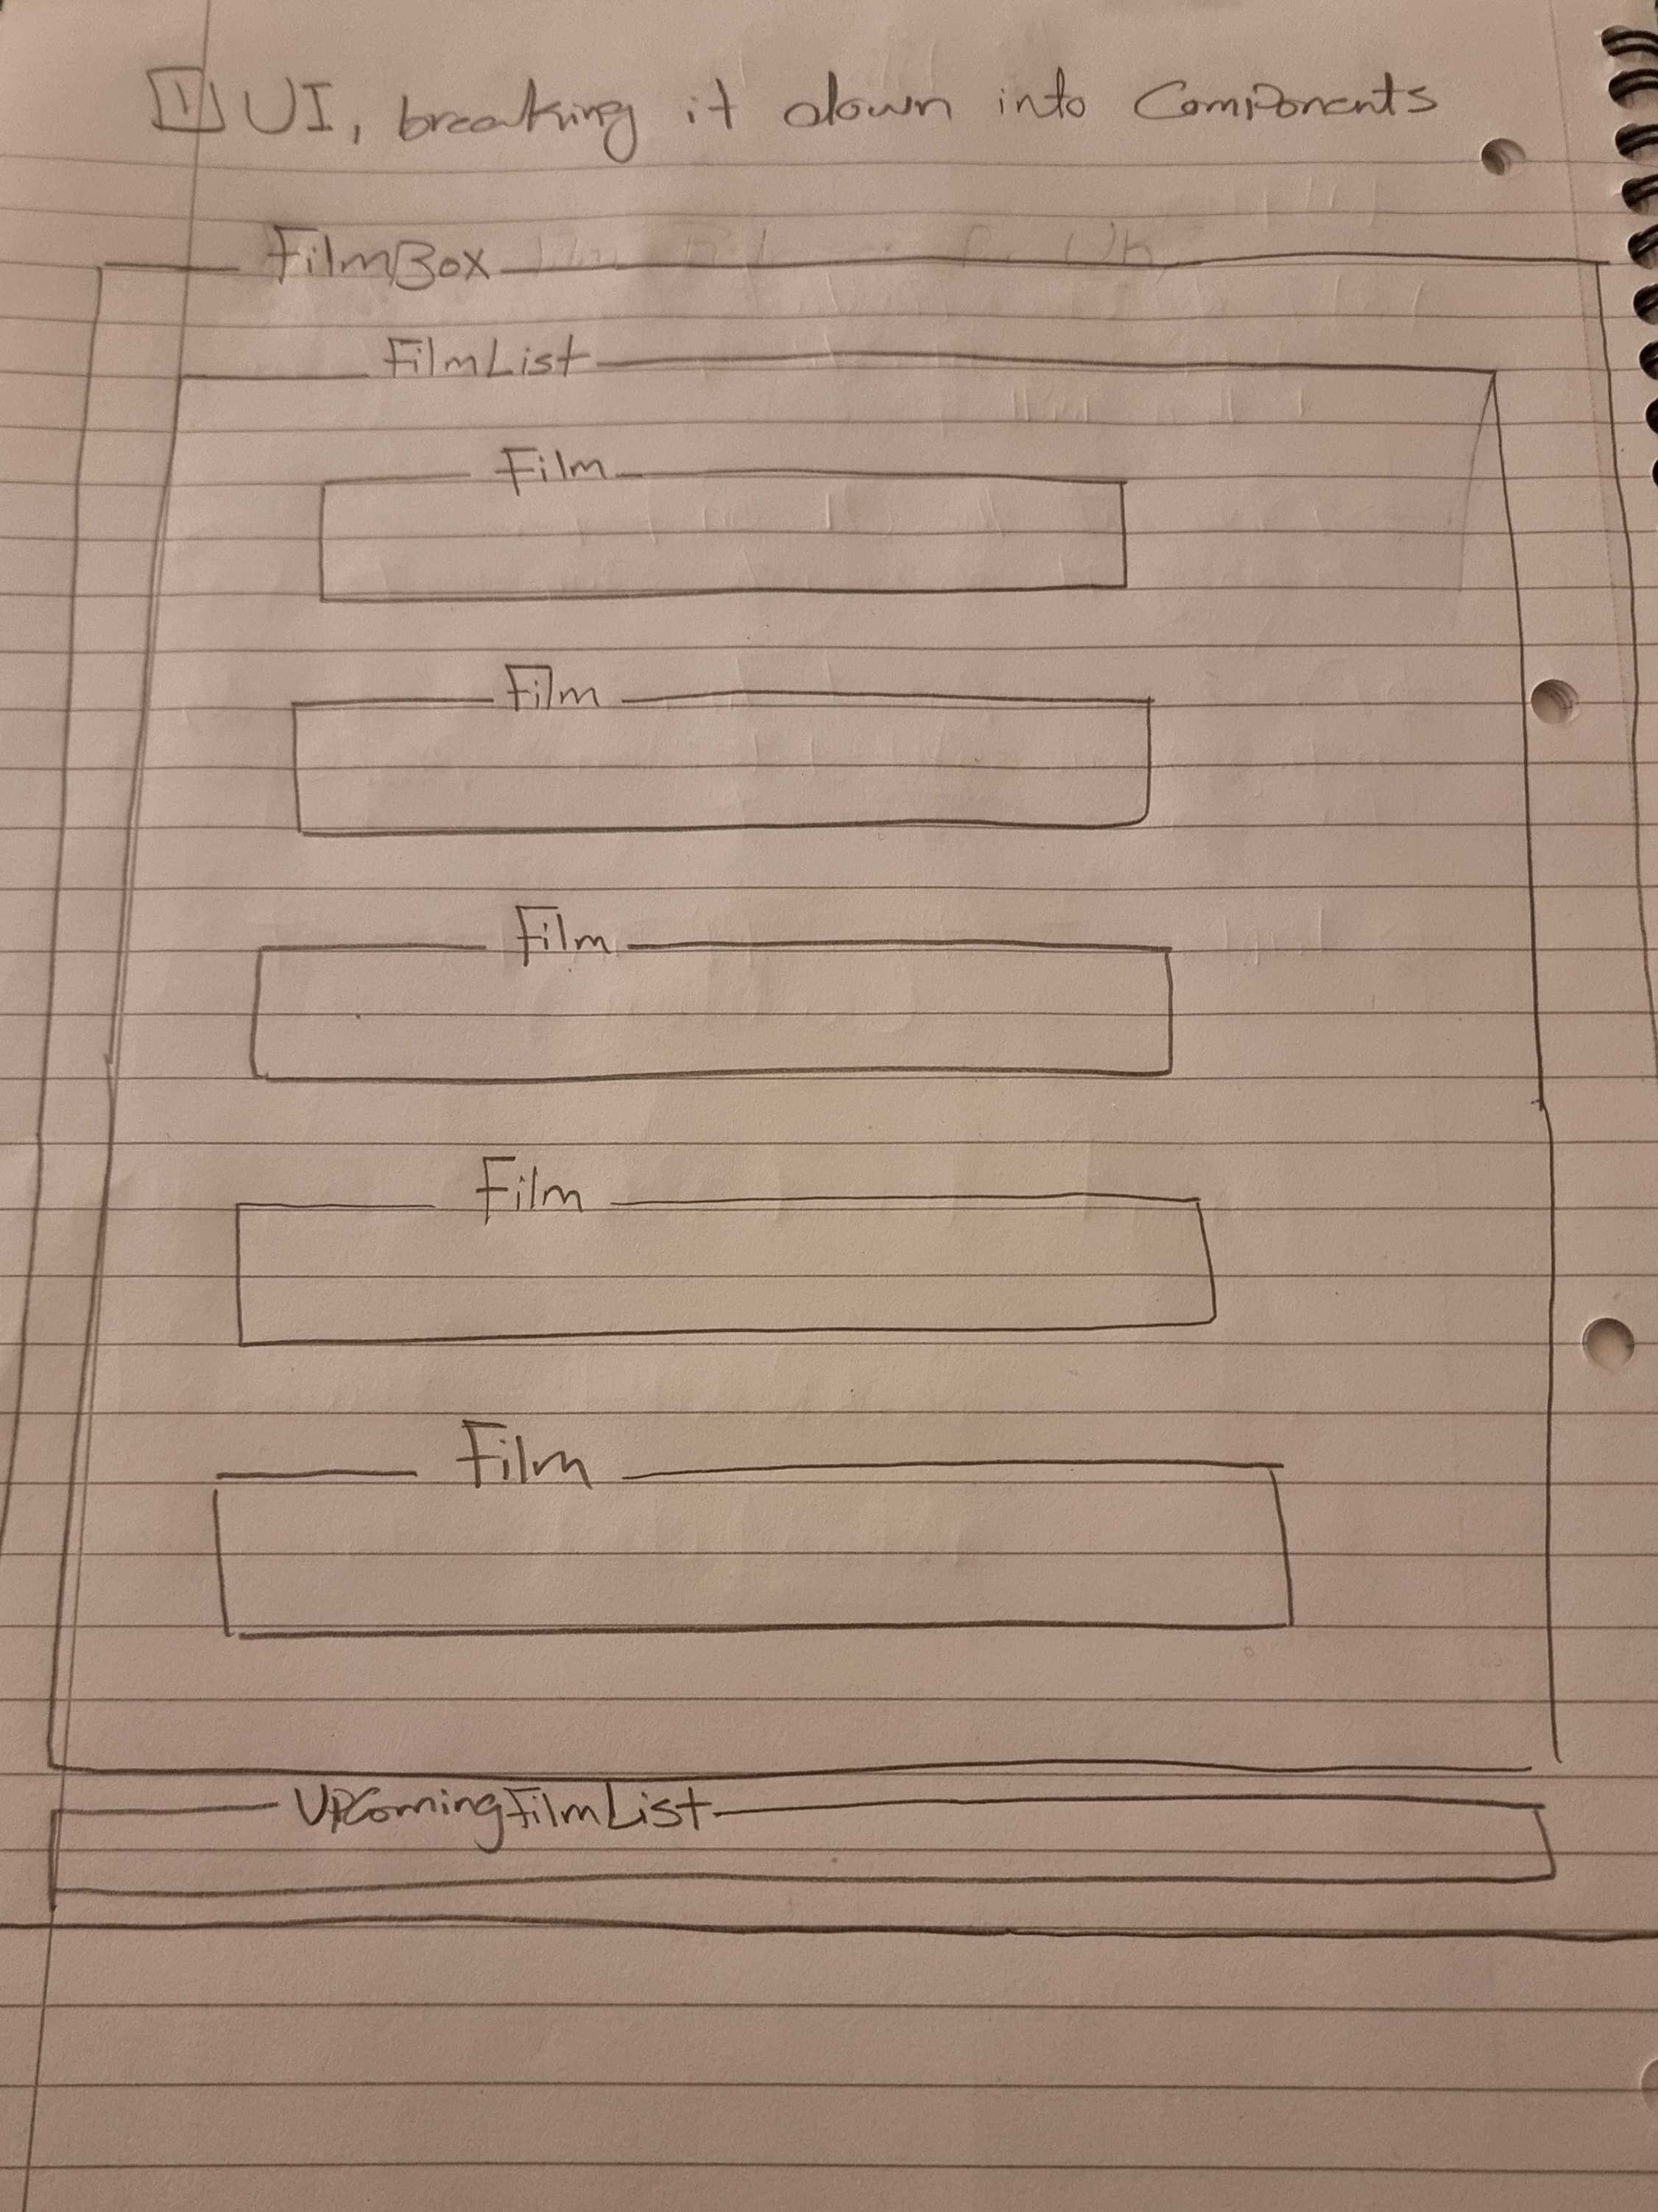 1 UI, breaking it down into Components
FilmBox
FilmList
Film
Film
Film
Film
Film
UpComingFilmList